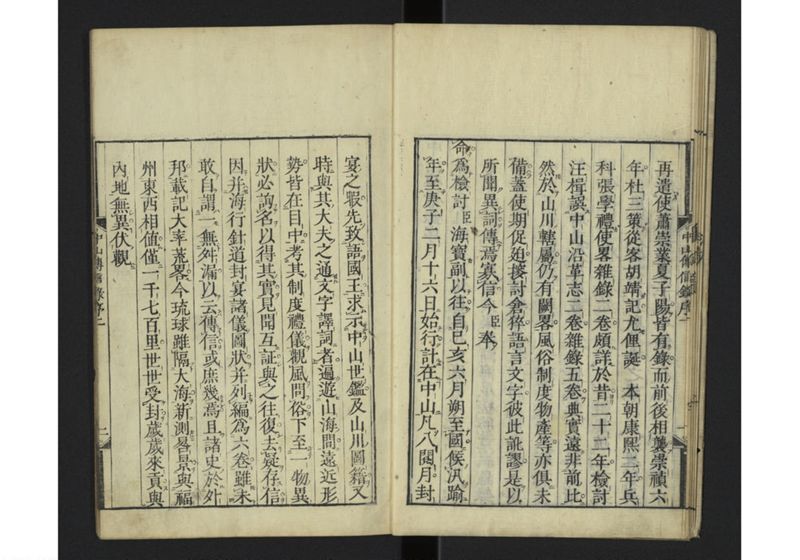 再遣使蕭崇業夏子陽皆有錄而前後相襲崇禎六
年杜三策從客胡靖記尤俚誕　本朝康熙二年兵
科張學禮使畧雜錄二卷頗詳於昔二十二年檢討
汪楫譔中山沿革志二卷雜錄五卷典實遠非前比
然於山川轄屬仍有闕畧風俗制度物產等亦俱未
備蓋使期促迫搜討倉猝語言文字彼此訛謬是以
所聞異詞傳焉寡信今臣奉
命為檢討臣海寶副以往自己亥六月朔至國候汛踰
年至庚子二月十六日始行計在中山凡八閱月封
宴之暇先致語國王求示中山世鑑及山川圖籍又
時與其大夫之通文字譯詞者遍遊山海間遠近形
勢皆在目中考其制度禮儀觀風問俗下至一物異
狀必詢名以得其實見聞互証與之往復去疑存信
因并海行針道封宴諸儀圖狀并列編為六卷雖未
敢自謂一無舛漏以云傳信或庶幾焉且諸史於外
邦載記大率荒畧今琉球雖隔大海新測晷景與福
州東西相値僅一千七百里世世受封歲歲來貢與
內地無異伏觀
中山傳信錄序二
二